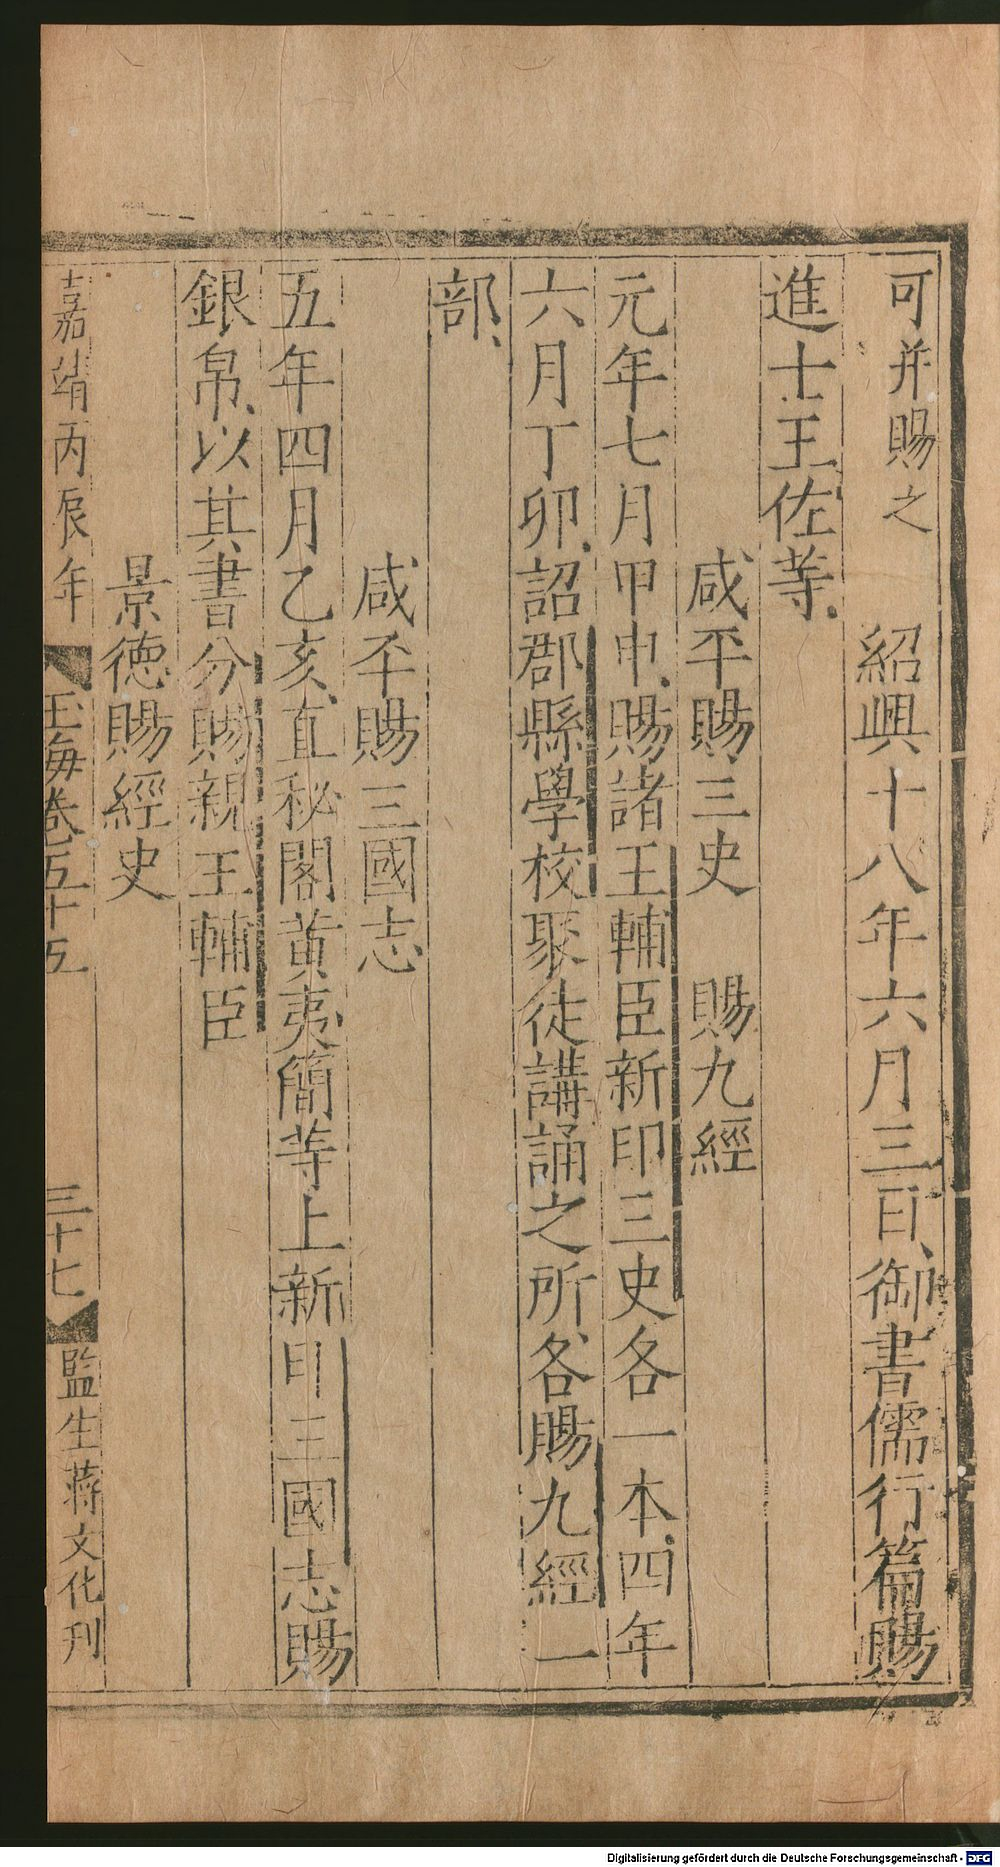 可并賜之　紹興十八年六月三日、御書儒行篇賜
進士王佐等、
咸平賜三史　賜九經
元年七月甲申、賜諸王輔臣新印三史各一本、四年
六月丁卯、詔郡縣學校聚徒講誦之所、各賜九經一
部、
咸平賜三國志
五年四月乙亥、直秘閣黄夷簡等上新印三國志賜
銀帛、以其書分賜親王輔臣
景徳賜經史
嘉靖丙辰年　玉海卷五十五　三十七　監生蔣文化刊
Digitalisierung gefördert durch die Deutsche Forschungsgemeinschaft - DFG